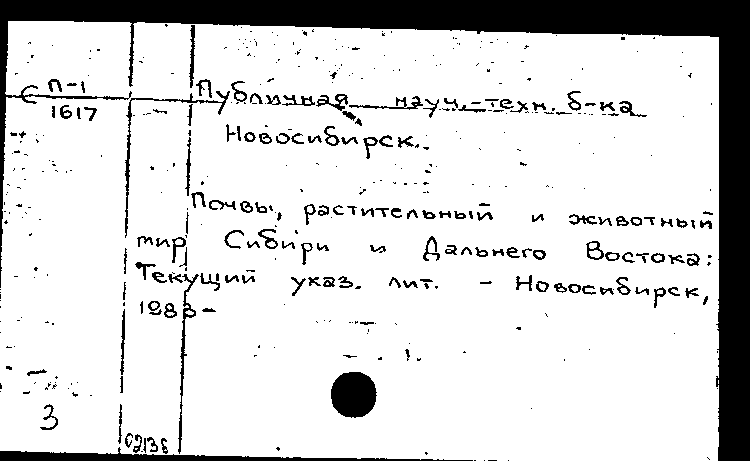 С П-1 Публичная науч.-техн. б-ка
1617
Новосибирск.
Почвы, растительный и животный
мир Сибири и Дальнего Востока:
Текущий указ. лит. - Новосибирск,
1983-
3